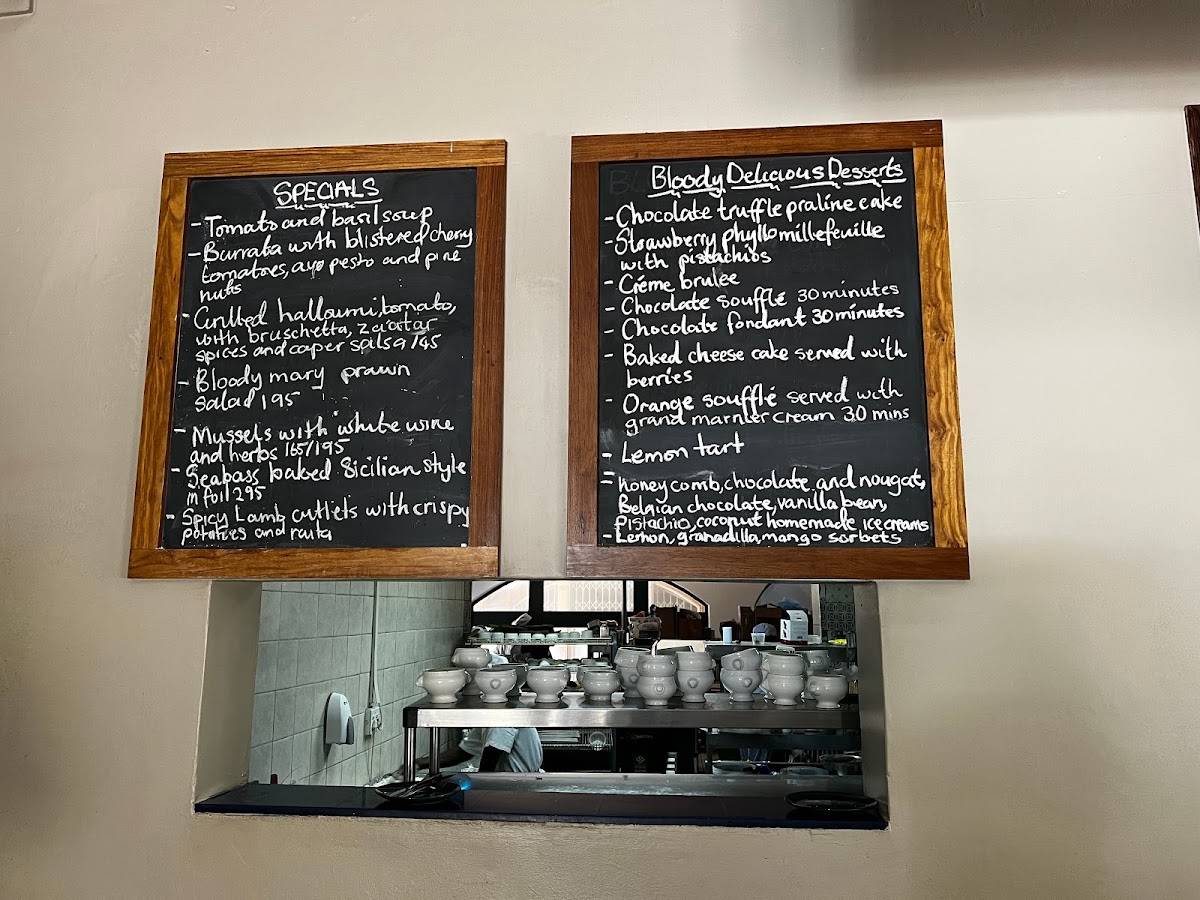 SPECIALS
- Tomato and basil soup
- Burrata with blistered cherry
tomatoes, avo pesto and pine
nuts
- Grilled halloumi, tomato,
with bruschetta, zaatar
spices and caper salsa 145
- Bloody mary prawn
salad 195
- Mussels with white wine
and herbs 165/195
- Seabass baked Sicilian style
in foil 295
- Spicy Lamb cutlets with crispy
potatoes and raita
Bloody Delicious Desserts
- Chocolate truffle praline cake
- Strawberry phyllo millefeuille
with pistachios
- Créme brulee
- Chocolate soufflé 30 minutes
- Chocolate fondant 30 minutes
- Baked cheese cake served with
berries
- Orange soufflé served with
grand marnier cream 30 mins
- Lemon tart
= honeycomb, chocolate and nougat,
Belgian chocolate, vanilla bean,
pistachio, coconut homemade ice creams
- Lemon, granadilla, mango sorbets